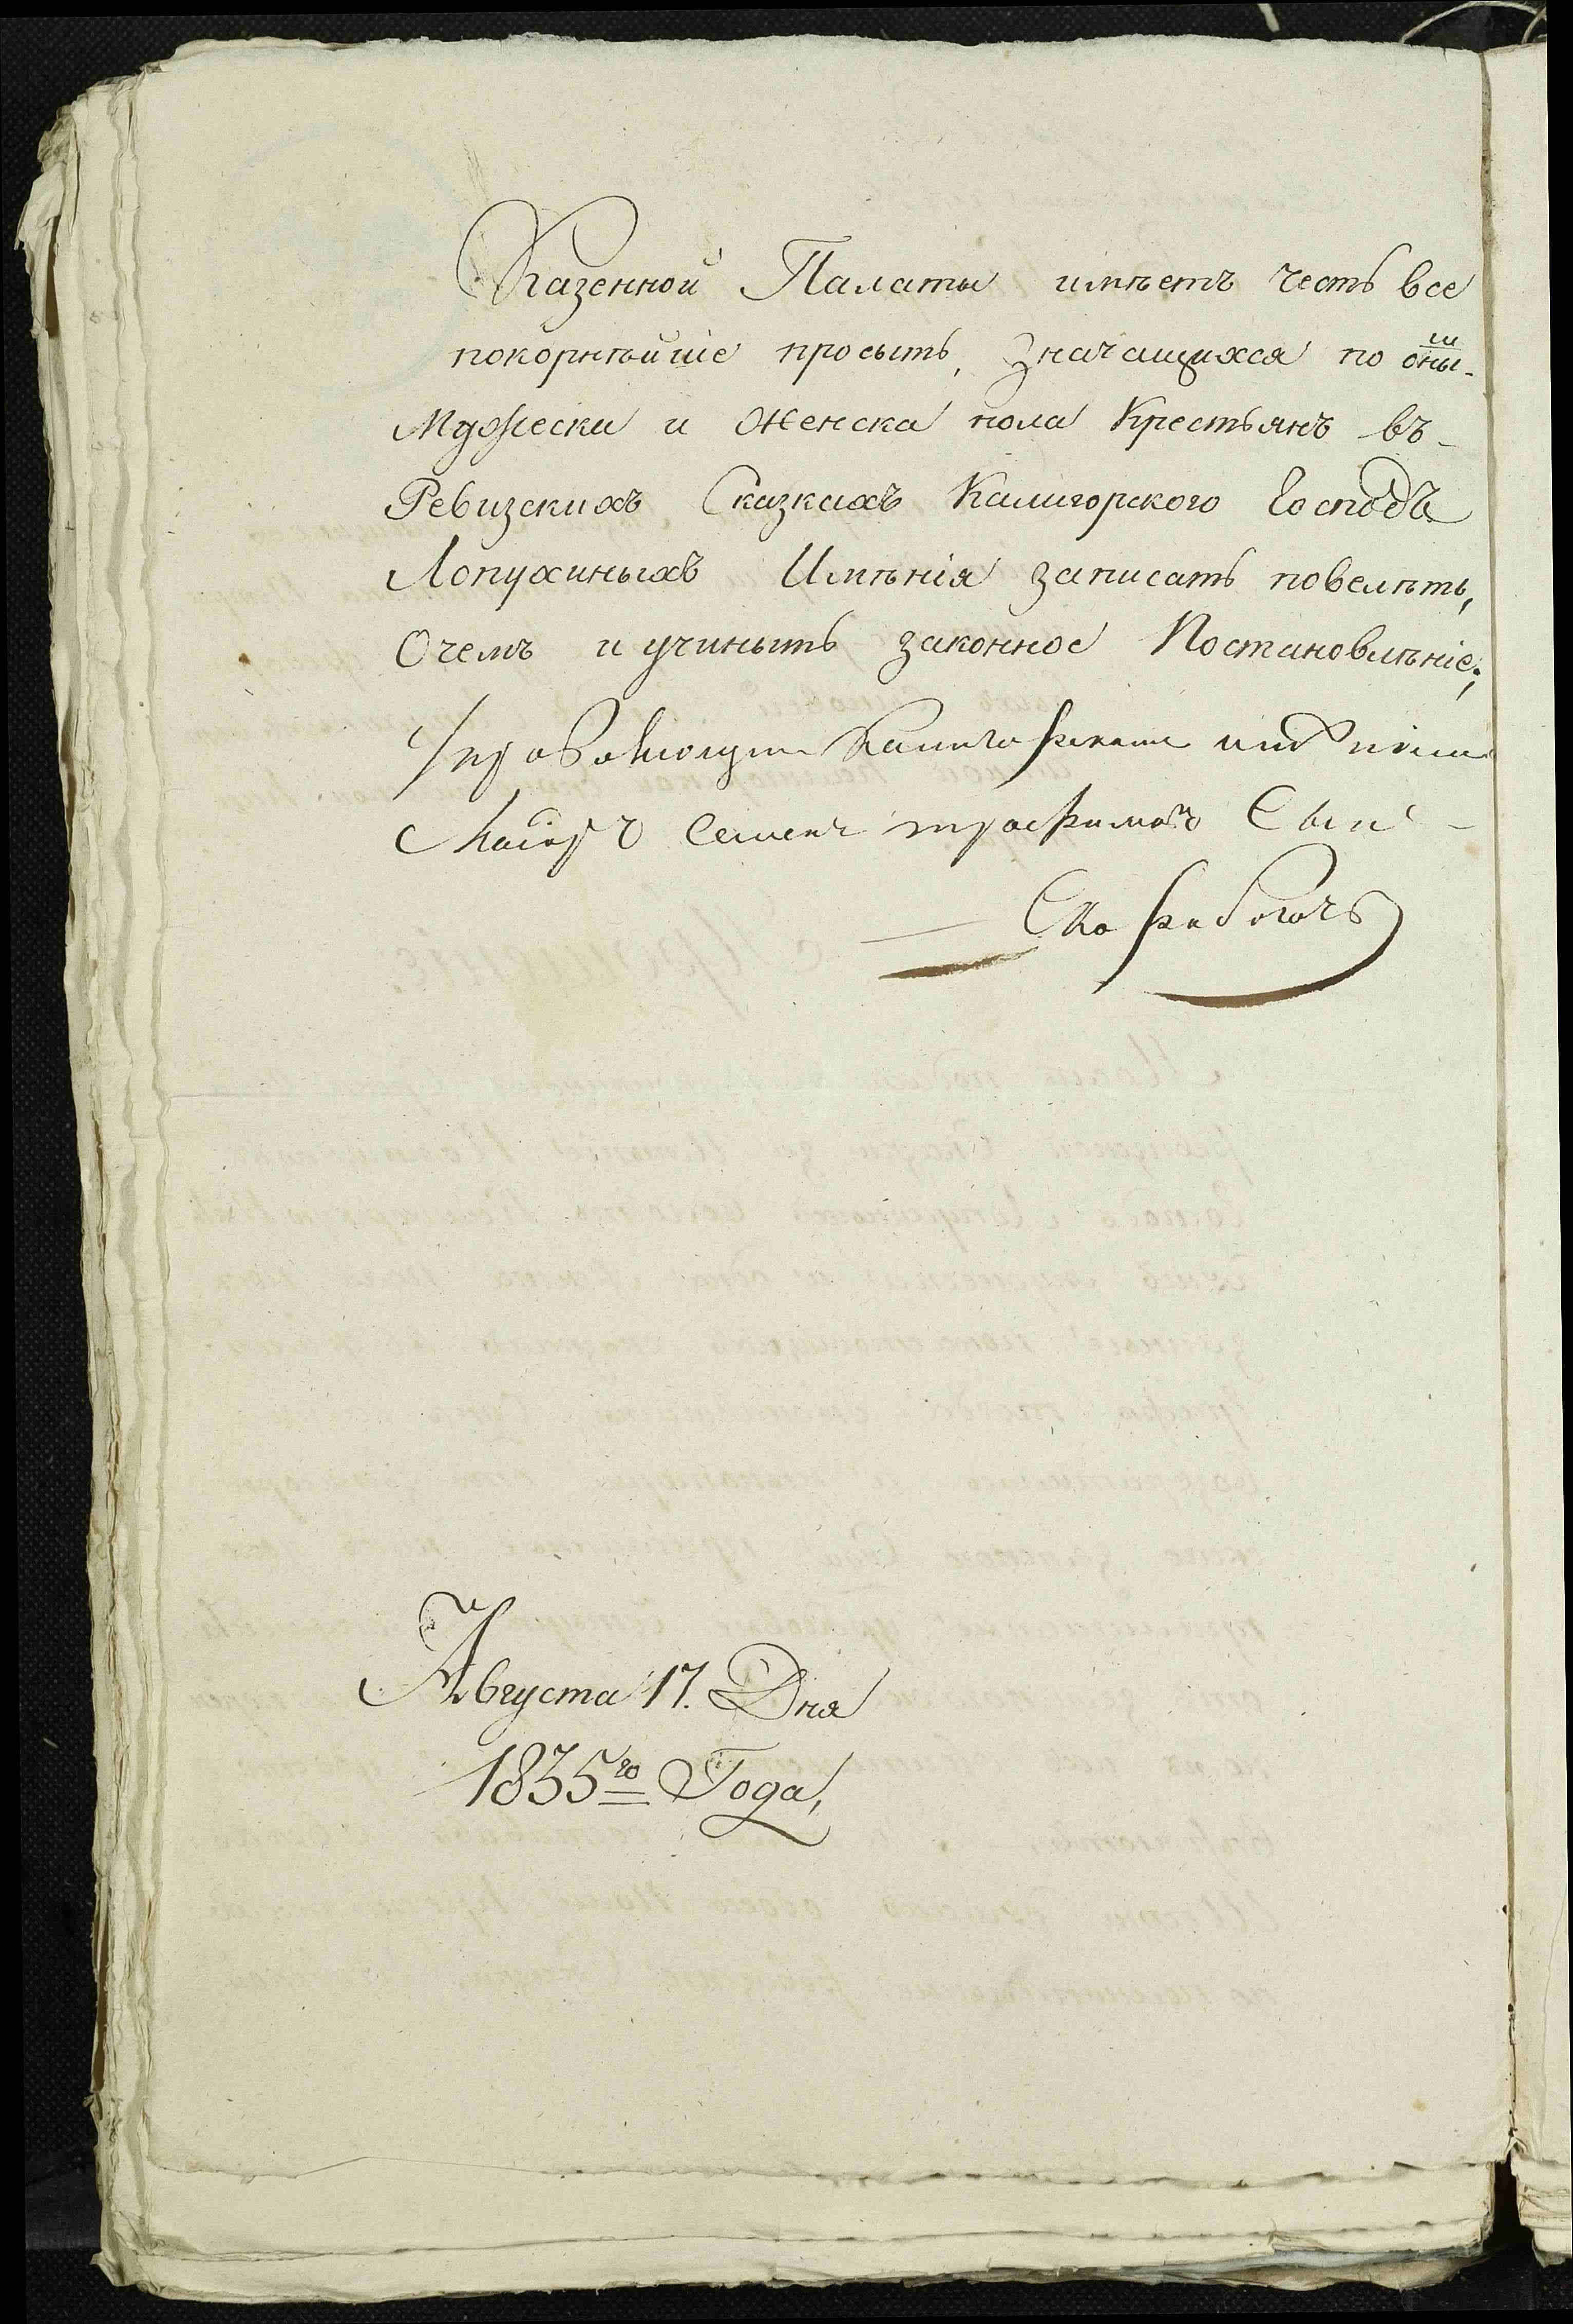 Казенной Палаты имѣетъ честь все
покорнѣйше просыть, Значащихся по оны-
Мужеска и Женска пола Крестьянъ въ
Ревизскихъ Сказкахъ Калигорского Господъ
Лопухиныхъ Имѣнія записать повелѣть,
Очемъ и учинить законное Постановлѣніе;
Управляющій Калигорскимъ имѣніемъ
Маіоръ Семенъ Трофимовъ Сынъ
Августа 17. Дня
1835го Года,